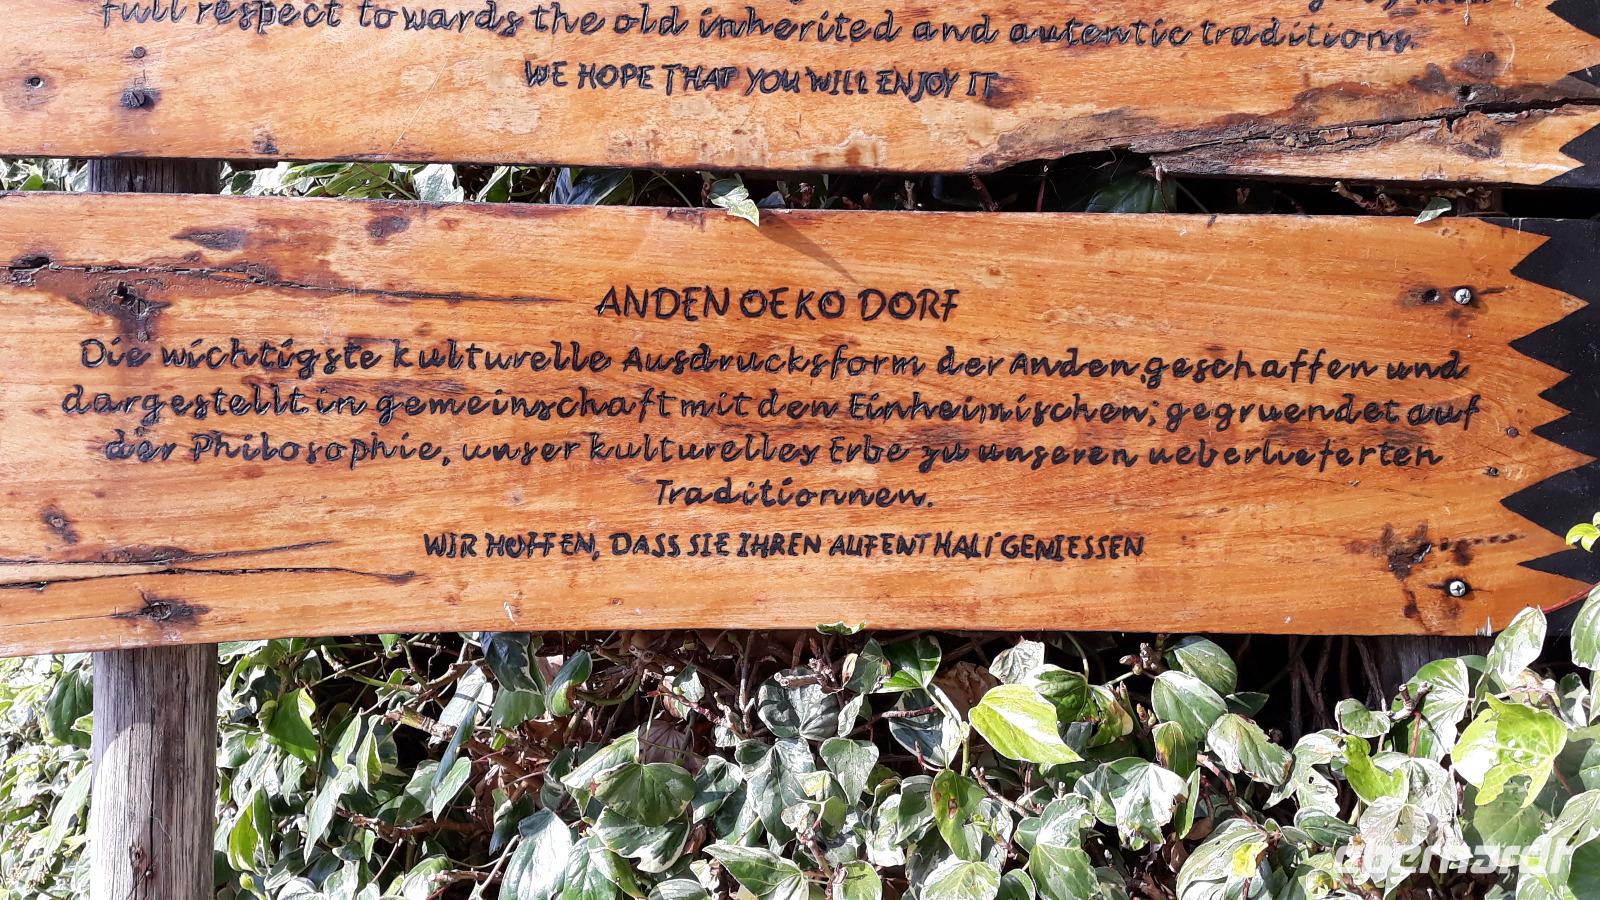 full respect towards the old inherited and autentic traditions.
WE HOPE THAT YOU WILL ENJOY IT
ANDEN OEKO DORF
Die wichtigste kulturelle Ausdrucksform der Anden, geschaffen und
dargestellt in gemeinschaft mit den Einheimischen; gegruendet auf
der Philosophie, unser kulturelles Erbe zu unseren ueberlieferten
Traditionnen.
WIR HOFFEN, DASS SIE IHREN AUFENTHALT GENIESSEN
eberhardt